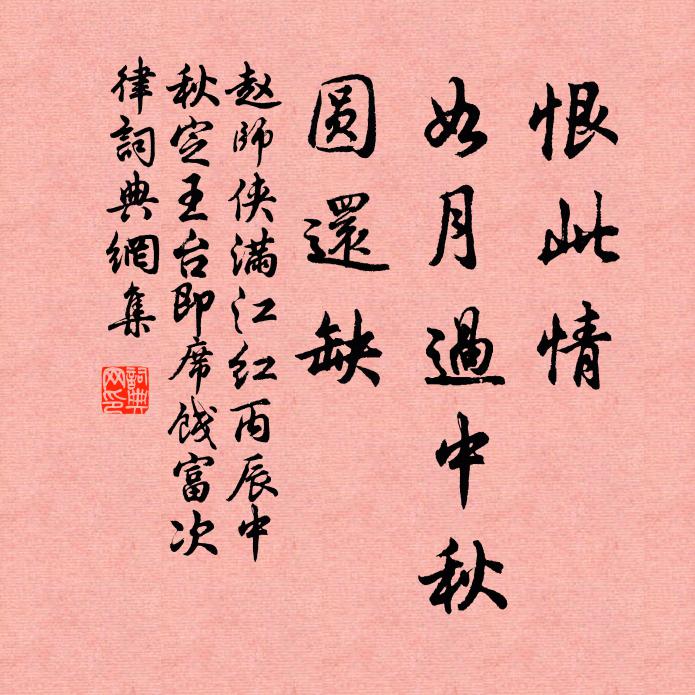 恨此情
如月過中秋
圓還缺
赵師侠满江红丙辰中
秋定王台即席餞富次
律詞典網集
詞典网印